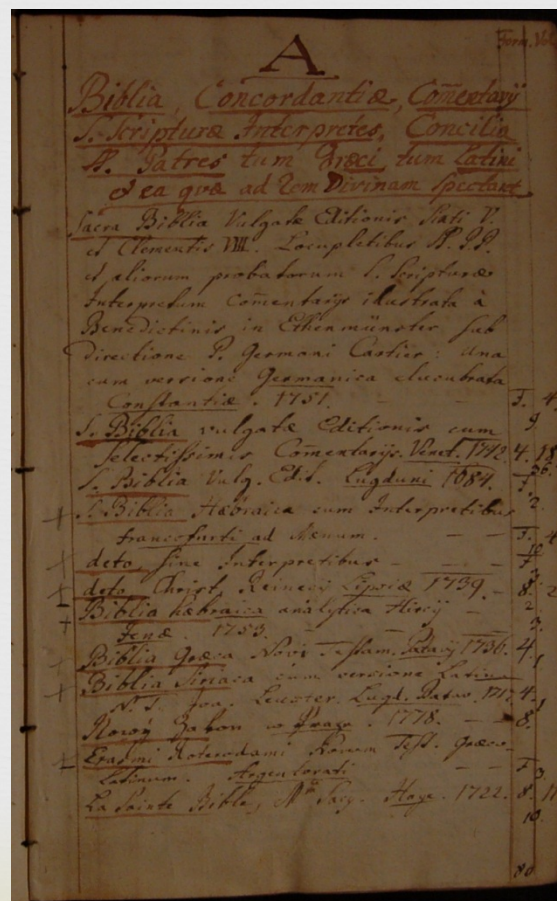 Form. Vol.
A
Biblia, Concordantiæ, Com̃entarij
S. Scripturæ Interpretes, Concilia
SS. Patres tum Græci tum Latini
et ea quæ ad rem Divinam spectant
Sacra Biblia Vulgatæ Editionis Sixti V.
et Clementis VIII. Locupletibus SS. P.P.
et aliorum probatorum S. Scripturæ
Interpretum com̃entarijs illustrata à
Benedictinis in Ethenmünster sub
directione P. Germani Cartier: una
cum versione Germanica elucubrata
Constantiæ. 1751. F. 4
S. Biblia vulgatæ Editionis cum
selectissimis Com̃entarijs. Venet. 1742. 4.
S. Biblia Vulg. Edit. Lugduni
S. Biblia Hæbraica cum Interpretibus
francofurti ad Mænum.
deto sine Interpretibus
deto Christ. Reinecij Lipsiæ 1739. 8.
Biblia hæbraica analytica
Jenæ. 1753.
Biblia Græca Novi Testam. Patavij 1736. 4.
Biblia Siriaca cum versione Latina
N. T. Joa. Leuster. Lugd. Batav. 1717. 4.
Nowý Zakon w Praze. 1778. 8.
Erasmi Roterodami Novum Test. Græco-
Latinum. Argentorati
La Sainte Bible, Haye. 1722. 8.